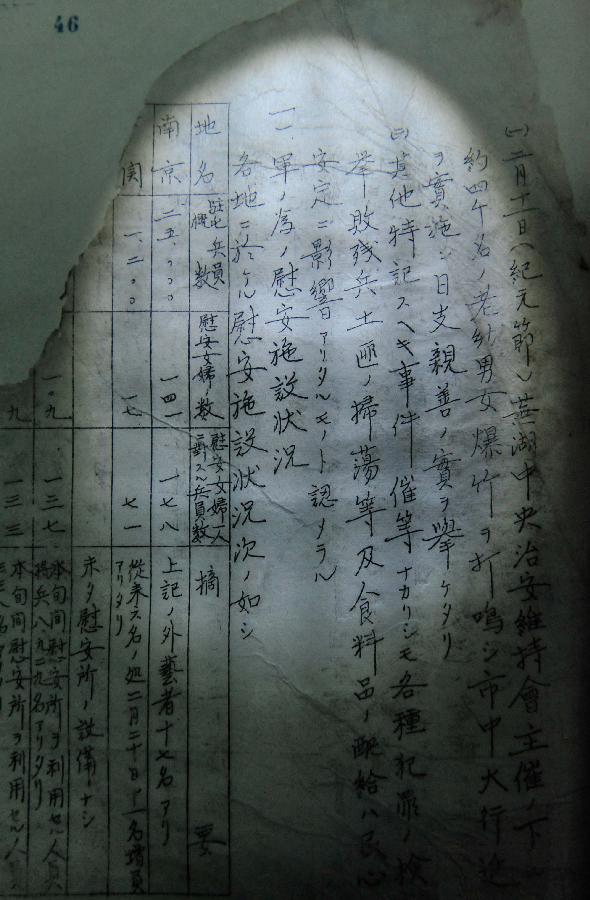 46
㈠二月十一日(紀元節)蕪湖中央治安維持會主催ノ下
約四千名ノ老幼男女爆竹ヲ打鳴シ市中大行進
ヲ實施シ日支親善ノ實ヲ擧ケタリ
㈡其他特記スヘキ事件催等ナカリシモ各種犯罪ノ検
挙敗残兵土匪ノ掃蕩等及食料品ノ配給ハ民心
安定ニ影響アリタルモノト認メラル
一、軍ノ為ノ慰安施設状況
各地ニ於ケル慰安施設状況次ノ如シ
地名 駐屯兵員概数 慰安婦ノ数 慰安婦一人ニ対スル兵員数 摘要
南京 二五、〇〇〇 一四一 一七八 上記ノ外藝者十七名アリ
一、二〇〇 一七 七一 従来六名ノ処二月二十日十一名増員アリタリ
未タ慰安所ノ設備ナシ
一〇九 一三七 本旬間慰安所ヲ利用セル人員
名アリタリ
九 一三三 本旬間慰安所ヲ利用セル人員